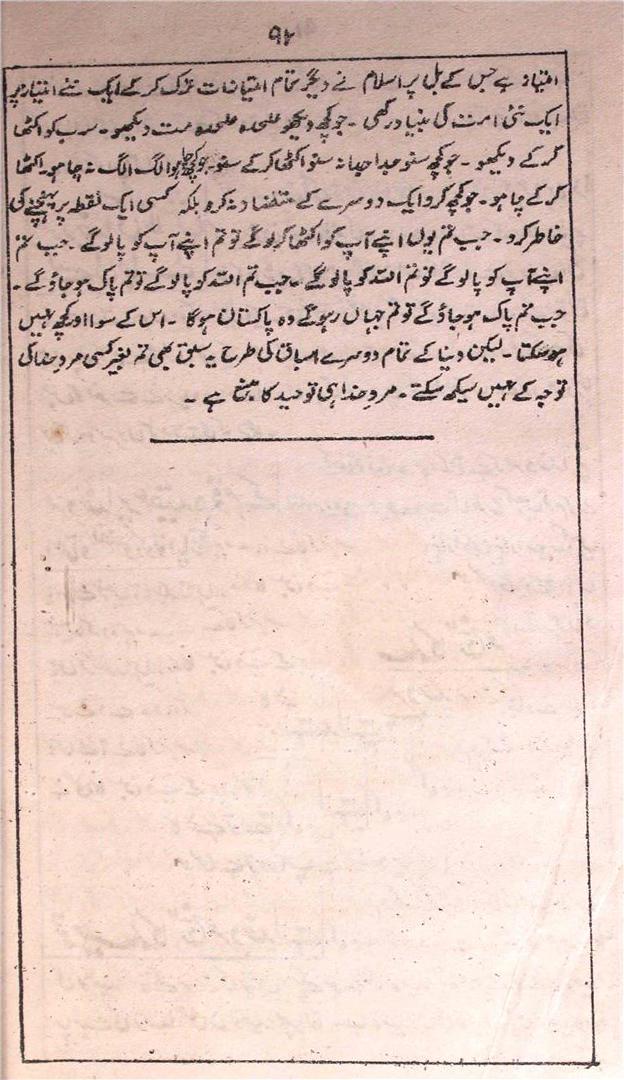 ۹۲
امتیاز ہے جس کے بل پر اسلام نے دیگر تمام امتیازات ترک کر کے ایک نئے امتیاز پر
ایک نئی امت کی بنیاد رکھی ۔ جو کچھ دیکھو علیحدہ علیحدہ مت دیکھو ۔ سب کو اکٹھا
کر کے دیکھو ۔ جو کچھ سنو جدا جدا نہ سنو اکٹھا کر کے سنو ۔ جو کچھ چاہو الگ الگ نہ چاہو ۔ اکٹھا
کر کے چاہو ۔ جو کچھ کرو ایک دوسرے کے متضاد نہ کرو بلکہ کسی ایک نقطہ پر پہنچنے کی
خاطر کرو ۔ جب تم یوں اپنے آپ کو اکٹھا کر لو گے تو تم اپنے آپ کو پا لو گے ۔ جب تم
اپنے آپ کو پا لو گے تو تم اللہ کو پا لو گے ۔ جب تم اللہ کو پا لو گے تو تم پاک ہو جاؤ گے ۔
جب تم پاک ہو جاؤ گے تو تم جہاں رہو گے وہ پاکستان ہو گا ۔ اس کے سوا اور کچھ نہیں
ہو سکتا ۔ لیکن دنیا کے تمام دوسرے اسباق کی طرح یہ سبق بھی تم بغیر کسی مرد خدا کی
توجہ کے نہیں سیکھ سکتے ۔ مرد خدا ہی توحید کا منبع ہے ۔